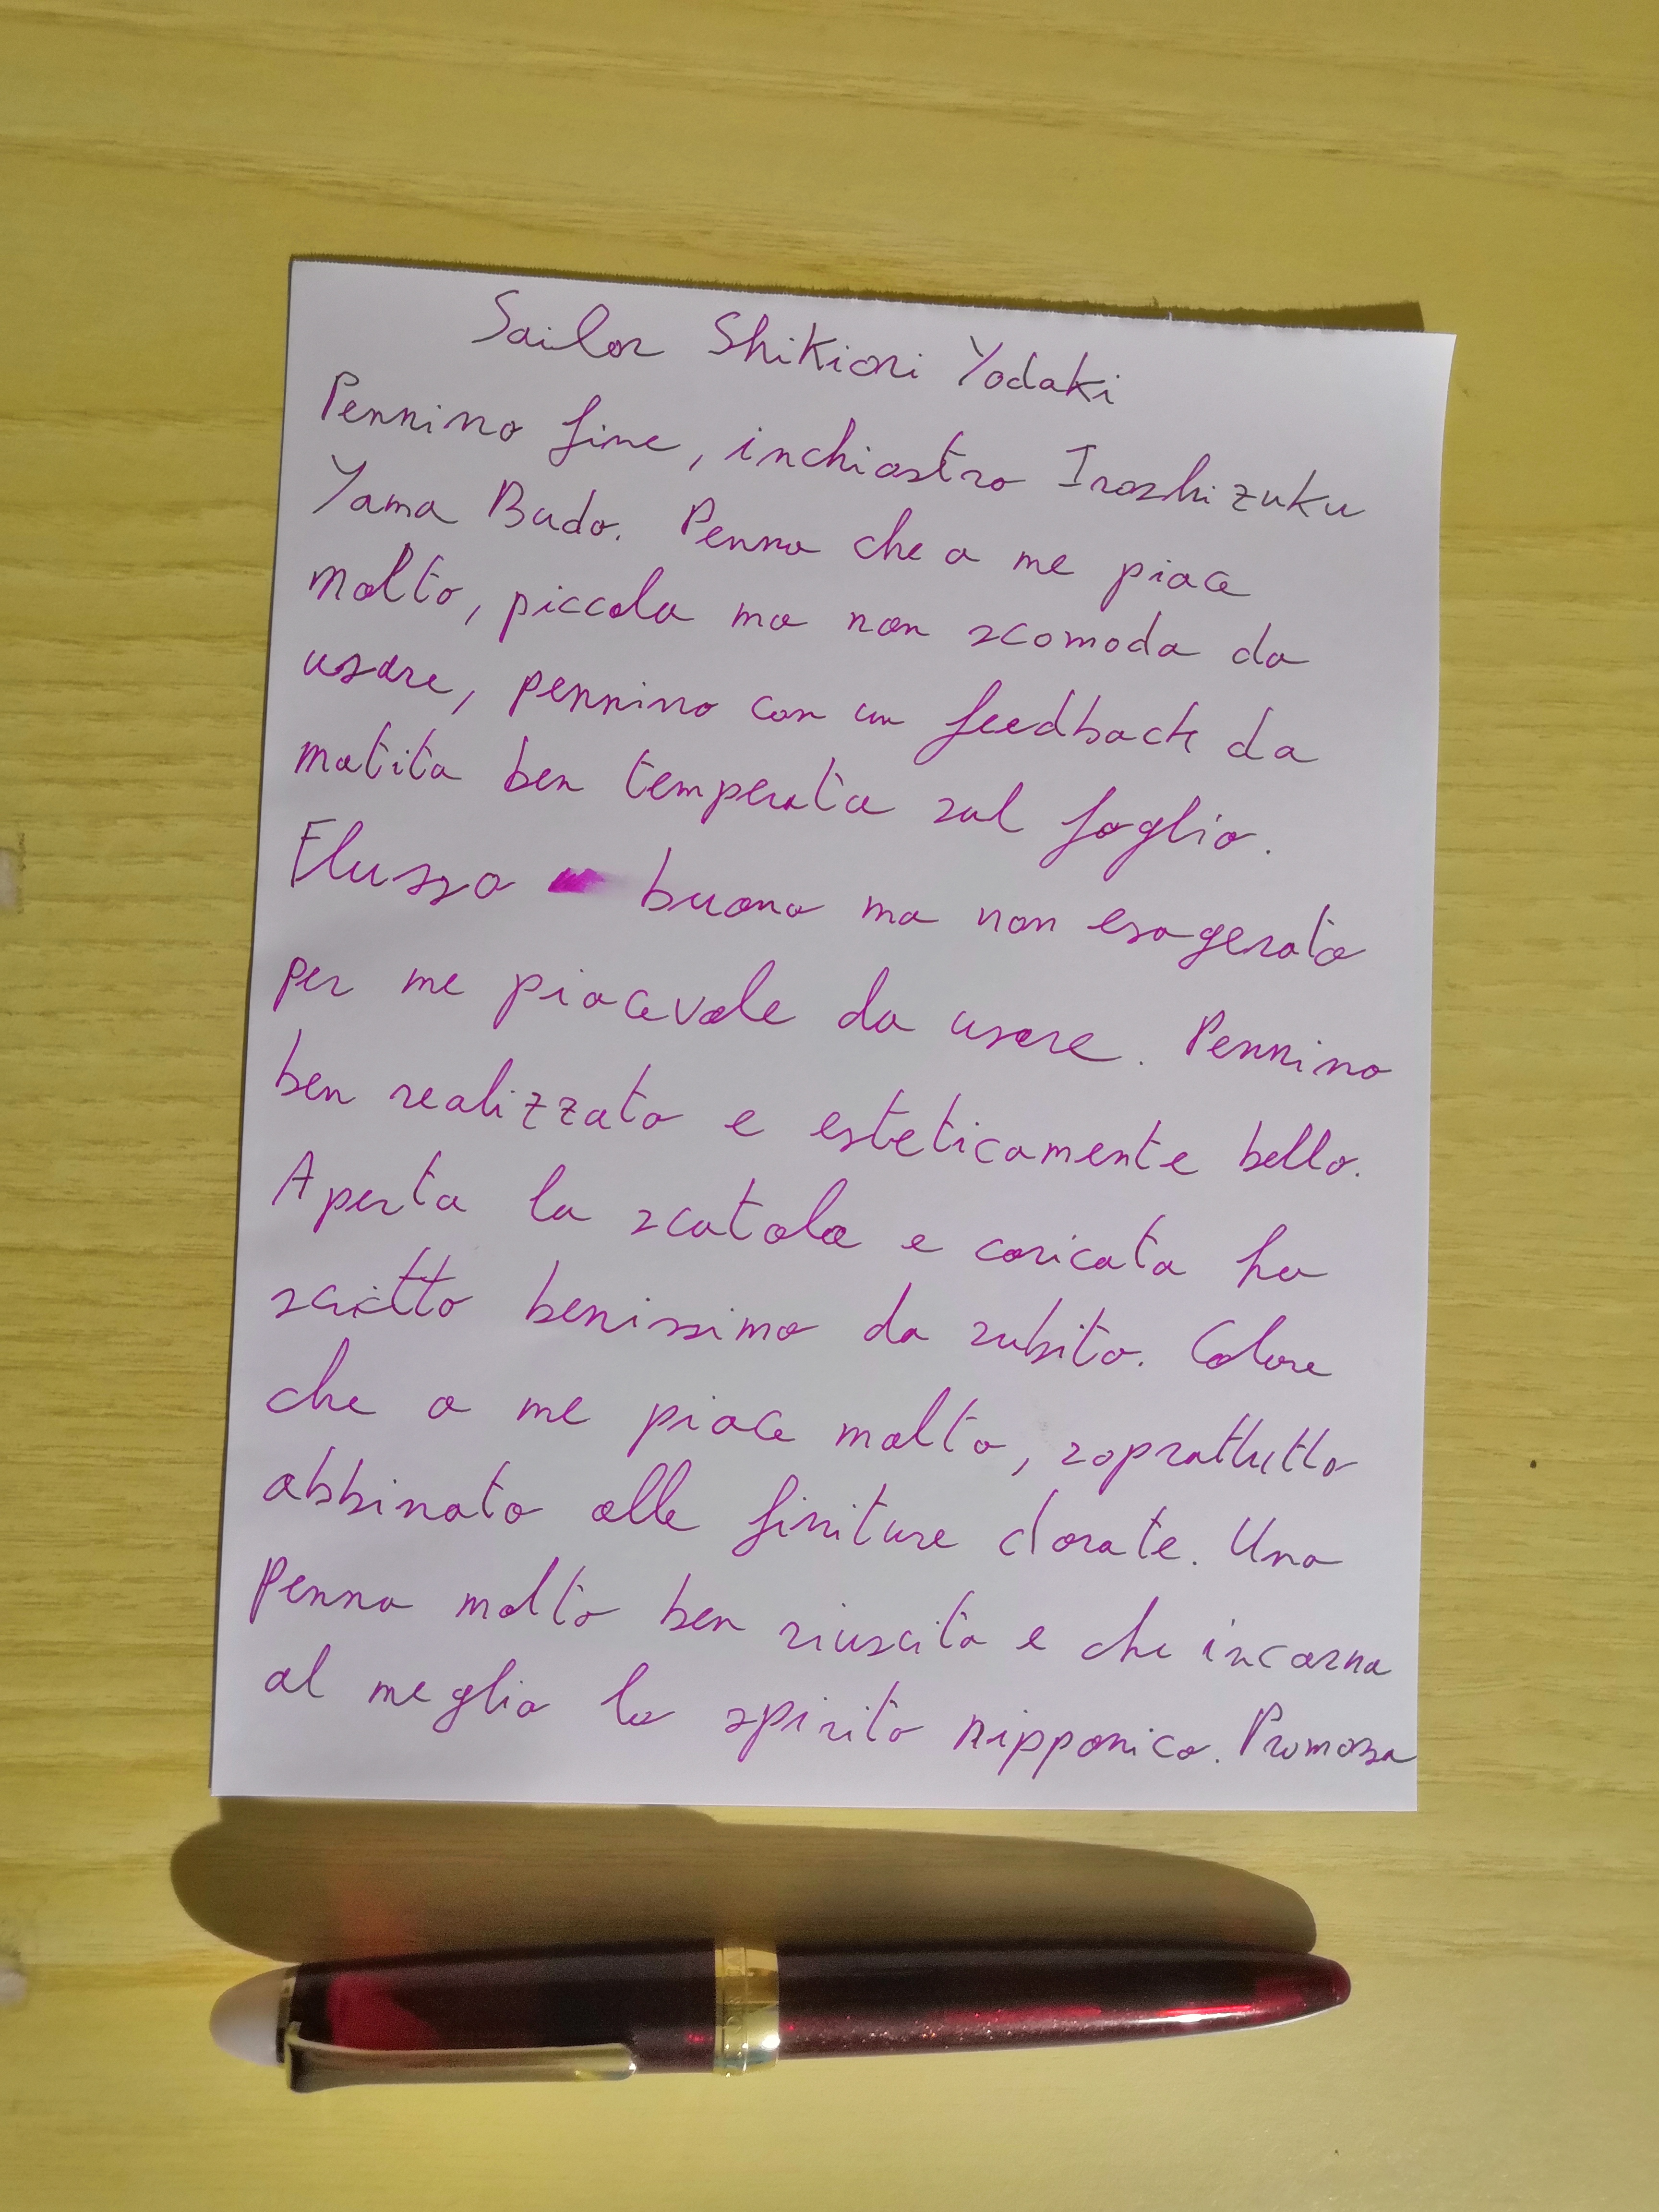 Sailor Shikiori Yodaki
Pennino fine, inchiostro Iroshizuku
Yama Budo. Penna che a me piace
molto, piccola ma non scomoda da
usare, pennino con un feedback da
matita ben temperata sul foglio.
Flusso buono ma non esagerato
per me piacevole da usare. Pennino
ben realizzato e esteticamente bello.
Aperta la scatola e caricata ha
scritto benissimo da subito. Colore
che a me piace molto, soprattutto
abbinato alle finiture dorate. Una
penna molto ben riuscita e che incarna
al meglio lo spirito nipponico. Promossa